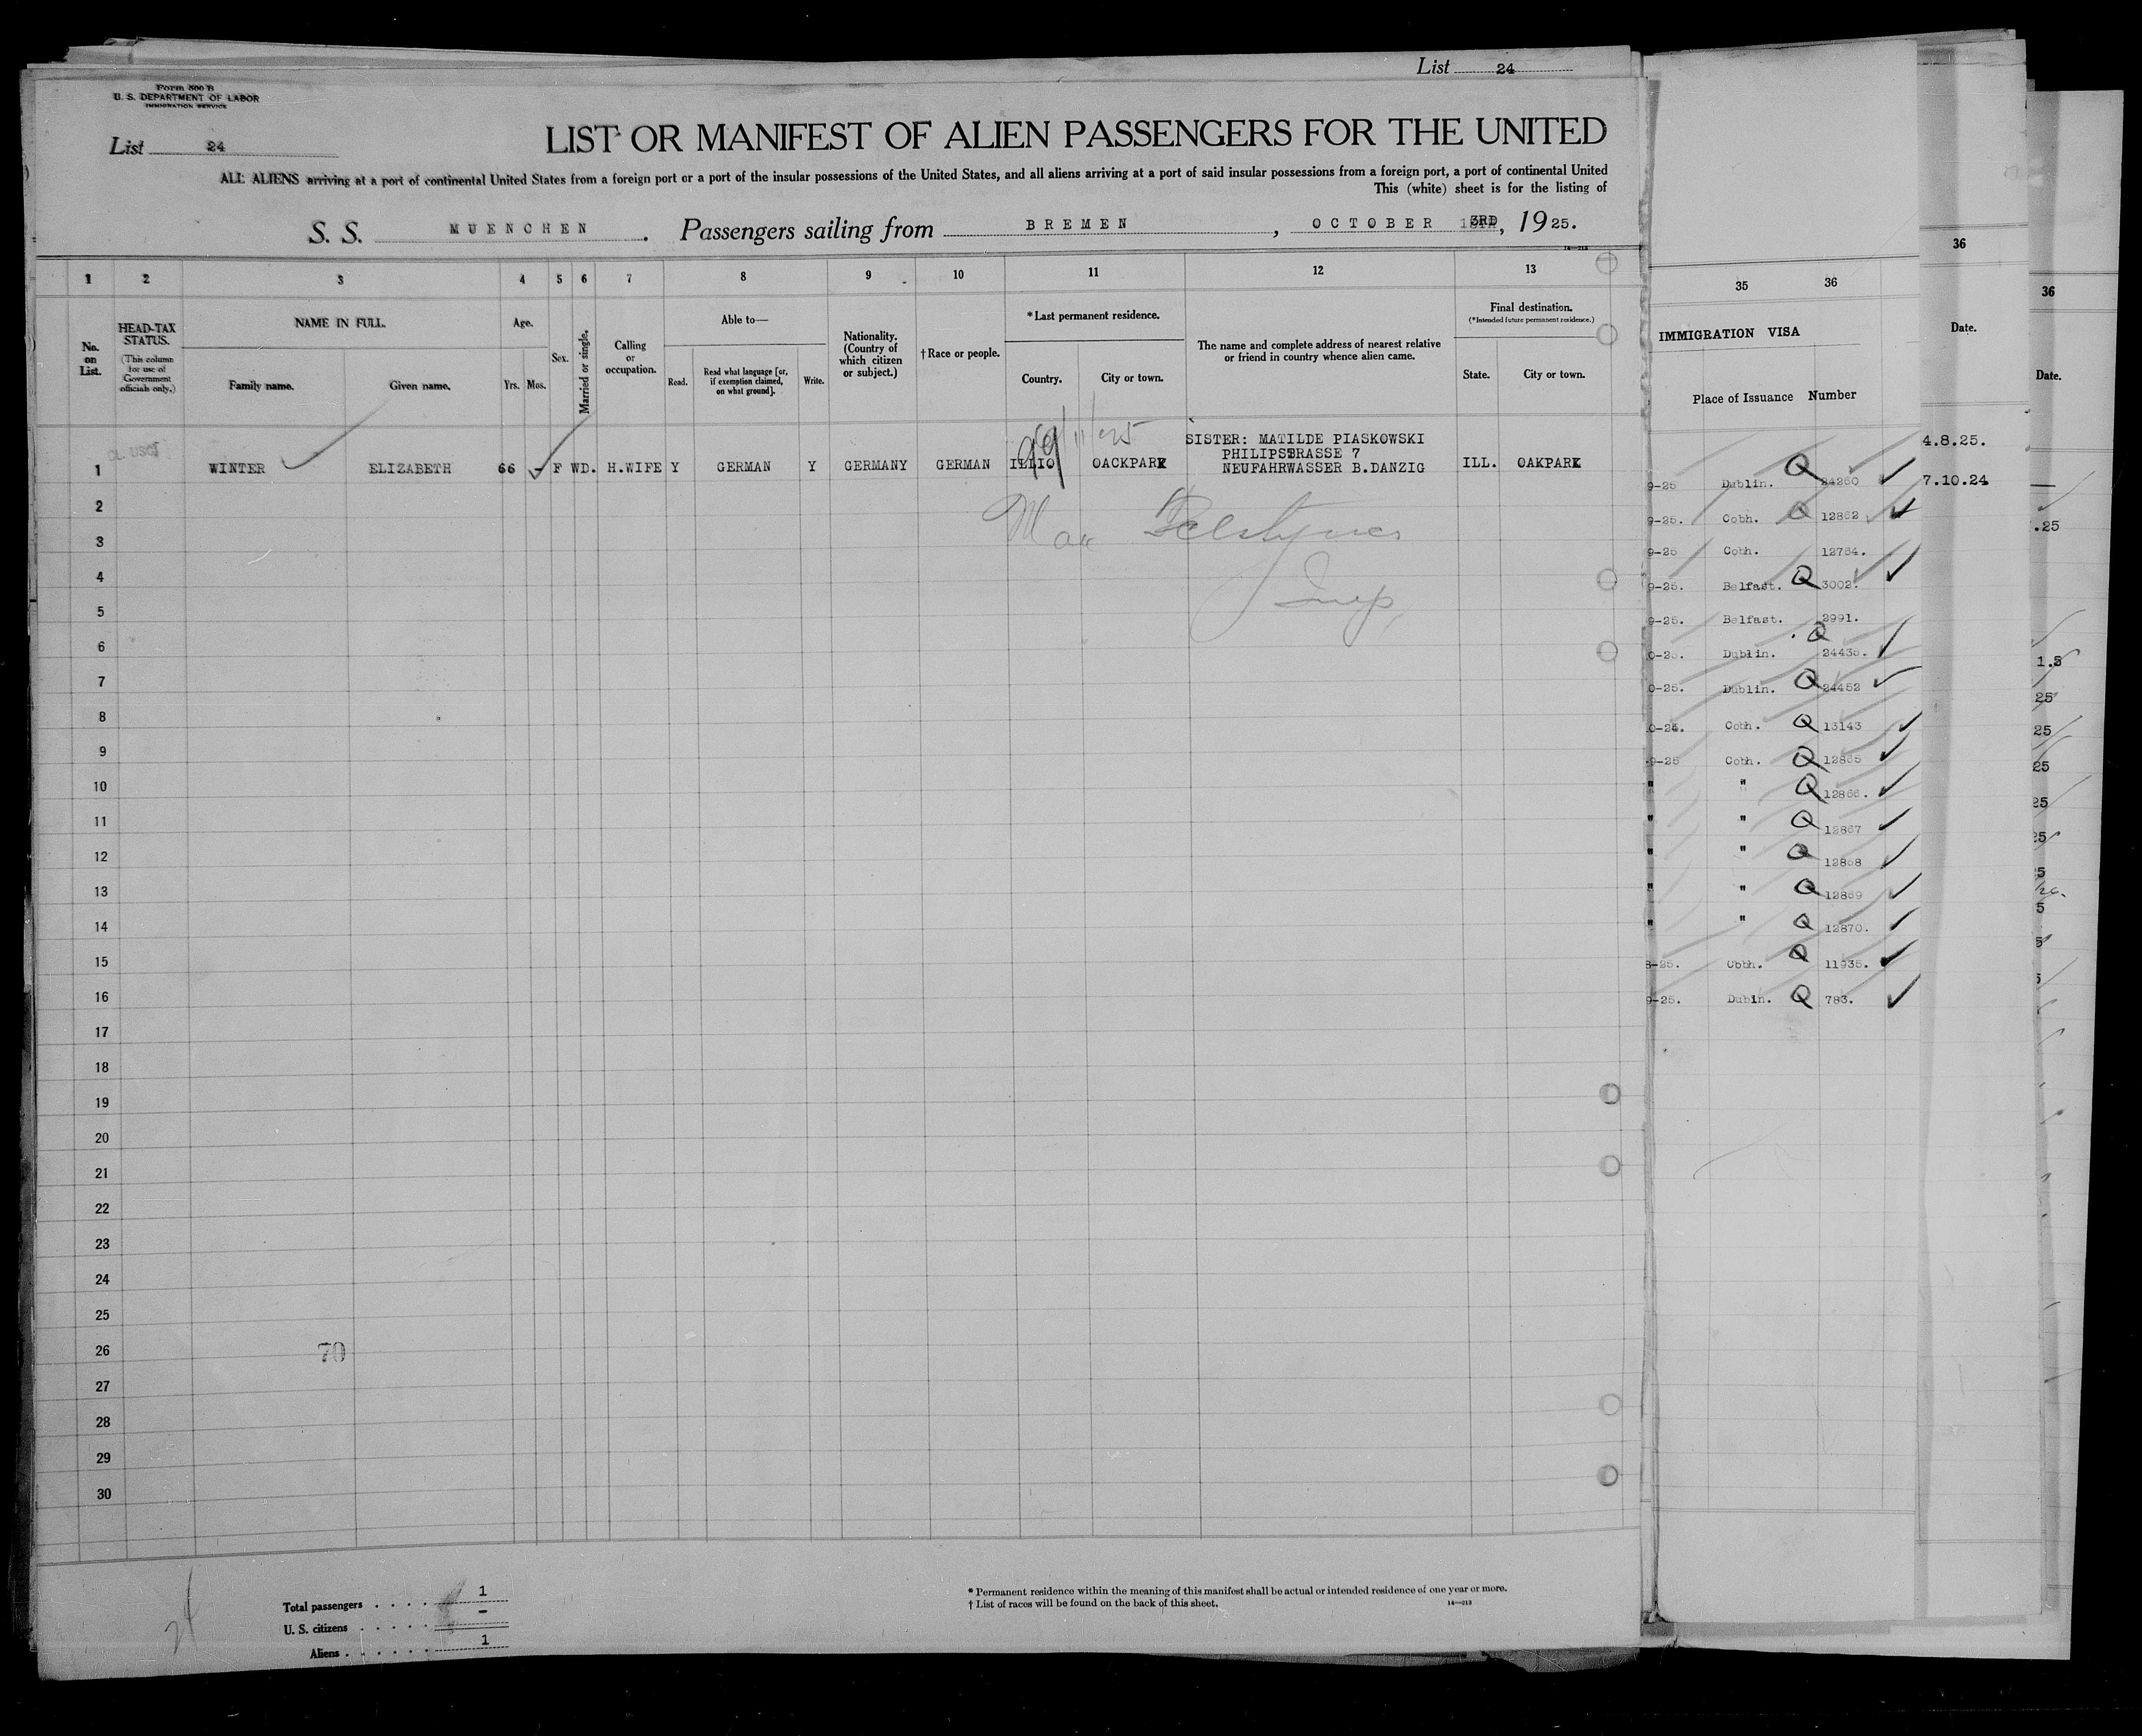 List 24
Form 500 B
U. S. DEPARTMENT OF LABOR
IMMIGRATION SERVICE
List 24
LIST OR MANIFEST OF ALIEN PASSENGERS FOR THE UNITED
ALL ALIENS arriving at a port of continental United States from a foreign port or a port of the insular possessions of the United States, and all aliens arriving at a port of said insular possessions from a foreign port, a port of continental United
This (white) sheet is for the listing of
S. S. MUENCHEN. Passengers sailing from BREMEN, OCTOBER 3RD, 1925.
14—213
1 2 3 4 5 6 7 8 9 10 11 12 13
No. on List.
HEAD-TAX STATUS.
(This column for use of Government officials only.)
NAME IN FULL.
Family name. Given name.
Age.
Yrs. Mos.
Sex.
Married or single.
Calling or occupation.
Able to—
Read. Read what language [or, if exemption claimed, on what ground]. Write.
Nationality. (Country of which citizen or subject.)
†Race or people.
*Last permanent residence.
Country. City or town.
The name and complete address of nearest relative or friend in country whence alien came.
Final destination.
(*Intended future permanent residence.)
State. City or town.
1 WINTER ELIZABETH 66 - F WD. H.WIFE Y GERMAN Y GERMANY GERMAN ILLIO OACKPARK
SISTER: MATILDE PIASKOWSKI
PHILIPSTRASSE 7
NEUFAHRWASSER B.DANZIG
ILL. OAKPARK
Max
Insp,
2
3
4
5
6
7
8
9
10
11
12
13
14
15
16
17
18
19
20
21
22
23
24
25
26
27
28
29
30
70
24
Total passengers . . . . 1
U. S. citizens . . . . . -
Aliens . . . . . . 1
* Permanent residence within the meaning of this manifest shall be actual or intended residence of one year or more.
† List of races will be found on the back of this sheet.
14—213
35 36
IMMIGRATION VISA
Place of Issuance Number
9-25 Dublin. Q 24260
9-25. Cobh. Q 12862
9-25 Cobh. 12764.
9-25. Belfast. Q 3002.
9-25. Belfast. 2991.
0-25. Dublin. Q 24435.
0-25. Dublin. Q 24452
Cobh. Q 13143
-9-25 Cobh. Q 12865
" " Q 12866.
" " Q 12867
" " Q 12868
" " Q 12869
" " Q 12870.
8-25. Cobh. Q 11935.
9-25. Dubin. Q 783.
36
Date.
4.8.25.
7.10.24
36
Date.
.25
1.5
25
25
25
25
25
5
26.
5
5
5